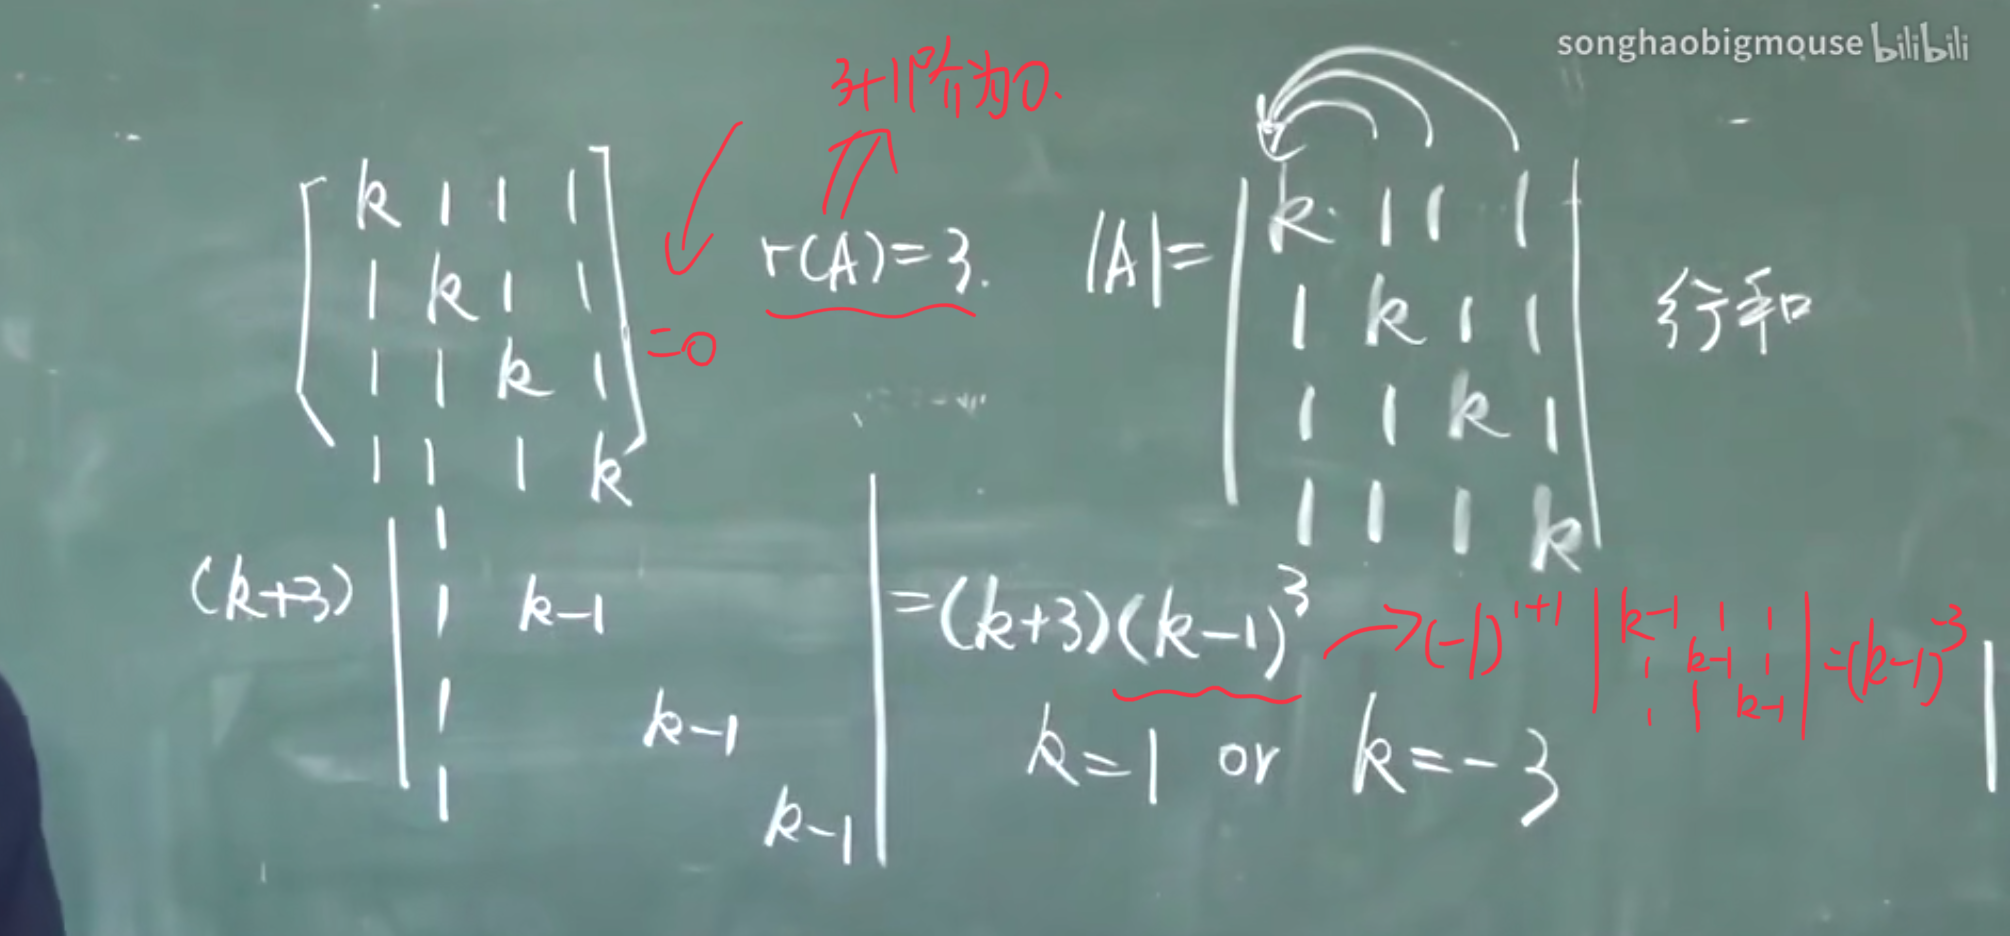 songhaobigmouse bilibili
3+1阶为0.
k 1 1 1
1 k 1 1
1 1 k 1
1 1 1 k
=0
r(A)=3.
|A|=
k 1 1 1
1 k 1 1
1 1 k 1
1 1 1 k
行和
(k+3)
1
1 k-1
1 k-1
1 k-1
=(k+3)(k-1)³
(-1)¹⁺¹
k-1 1 1
1 k-1 1
1 1 k-1
=(k-1)³
k=1 or k=-3